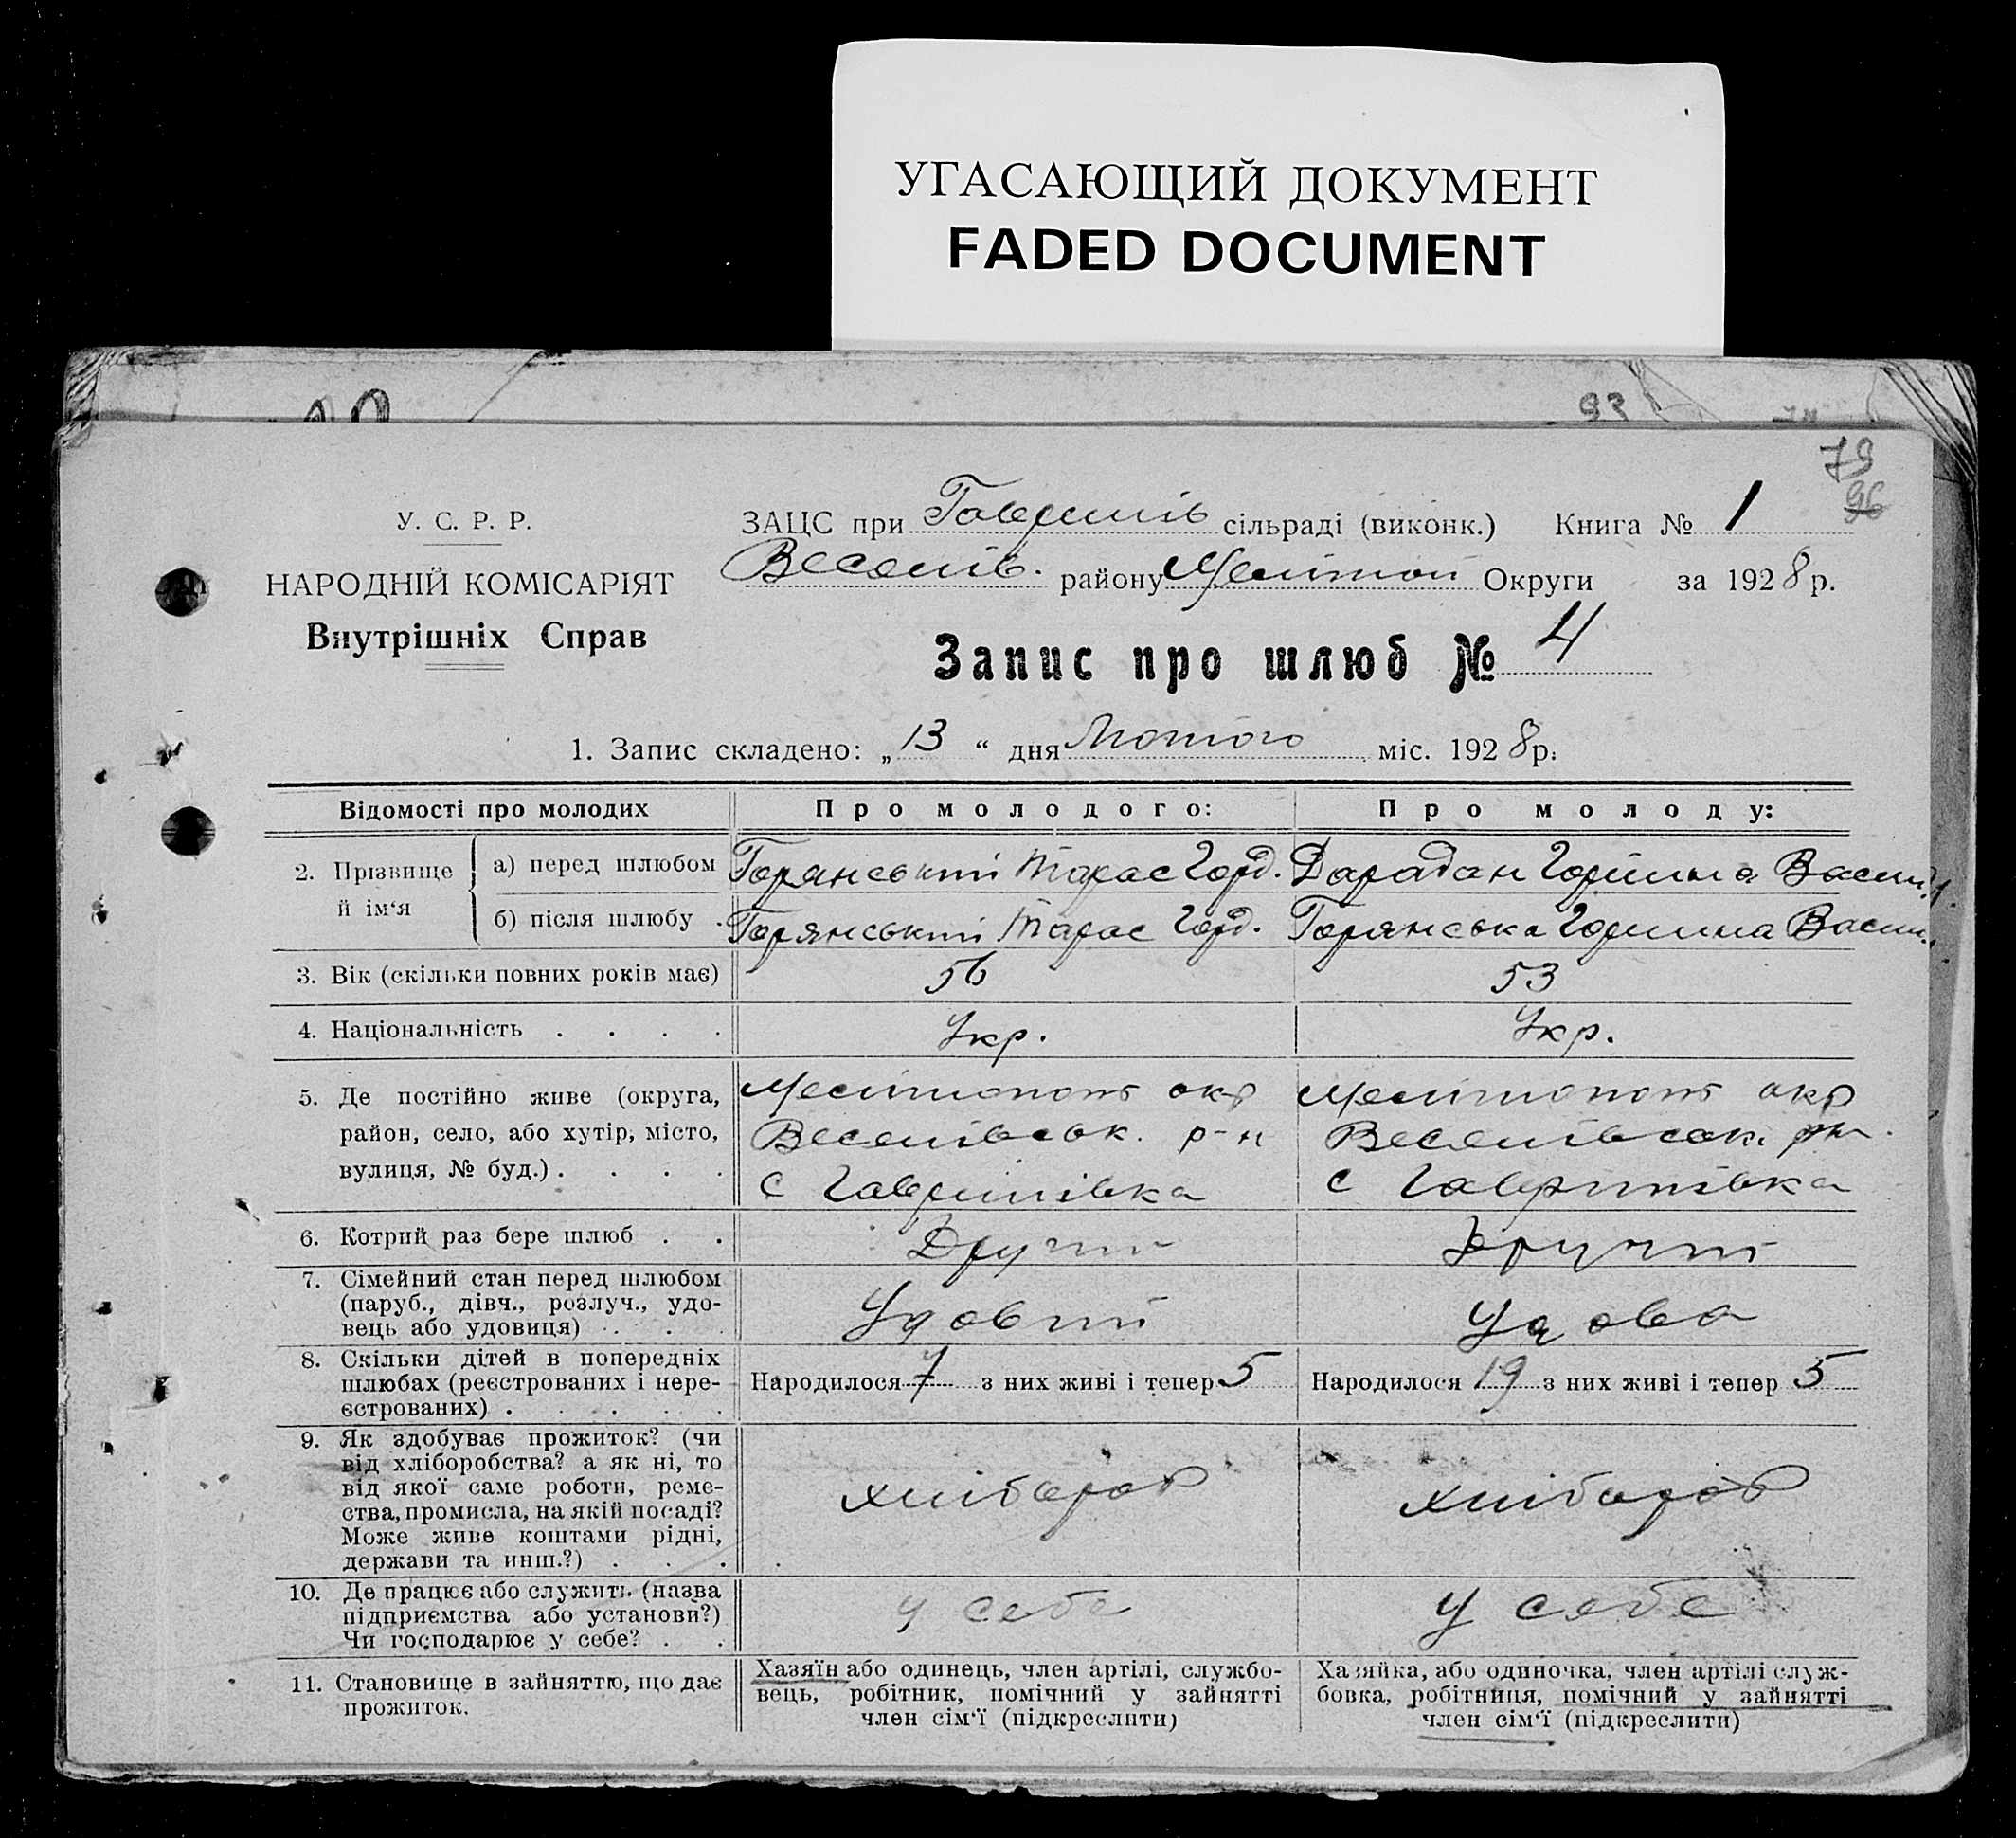 УГАСАЮЩИЙ ДОКУМЕНТ
FADED DOCUMENT
93
79
96
У. С. Р. Р.
НАРОДНІЙ КОМІСАРІЯТ
Внутрішніх Справ
ЗАЦС при Гаврилів сільраді (виконк.) Книга № 1
Веселів. району Меліто Округи за 1928 р.
Запис про шлюб № 4
1. Запис складено: „ 13 “ дня Лютого міс. 1928 р.
Відомості про молодих Про молодого: Про молоду:
2. Прізвище й ім‘я
а) перед шлюбом Горянський Тарас Горд. Дарадан Горпина Васил.
б) після шлюбу Горянський Тарас Горд. Горянська Горпина Васил.
3. Вік (скільки повних років має) 56 53
4. Національність . . . . Укр. Укр.
5. Де постійно живе (округа,
район, село, або хутір, місто,
вулиця, № буд.) . . . .
Мелітопольс окр
Веселівськ. р-н
с Гаврилівка
Мелітопольс окр
Веселівськ. рн.
с Гаврилівка
6. Котрий раз бере шлюб . . Другий Другий
7. Сімейний стан перед шлюбом
(паруб., дівч., розлуч., удо-
вець або удовиця) . . .
Удовий Удова
8. Скільки дітей в попередніх
шлюбах (реєстрованих і нере-
єстрованих) . . . . .
Народилося 7 з них живі і тепер 5 Народилося 19 з них живі і тепер 5
9. Як здобуває прожиток? (чи
від хліборобства? а як ні, то
від якої саме роботи, реме-
ства, промисла, на якій посаді?
Може живе коштами рідні,
держави та инш.?) . . .
хлібороб хлібороб
10. Де працює або служить (назва
підприємства або установи?)
Чи господарює у себе? . .
у себе у себе
11. Становище в зайняттю, що дає
прожиток.
Хазяїн або одинець, член артілі, службо-
вець, робітник, помічний у зайнятті
член сім‘ї (підкреслити)
Хазяйка, або одиночка, член артілі служ-
бовка, робітниця, помічний у зайнятті
член сім‘ї (підкреслити)